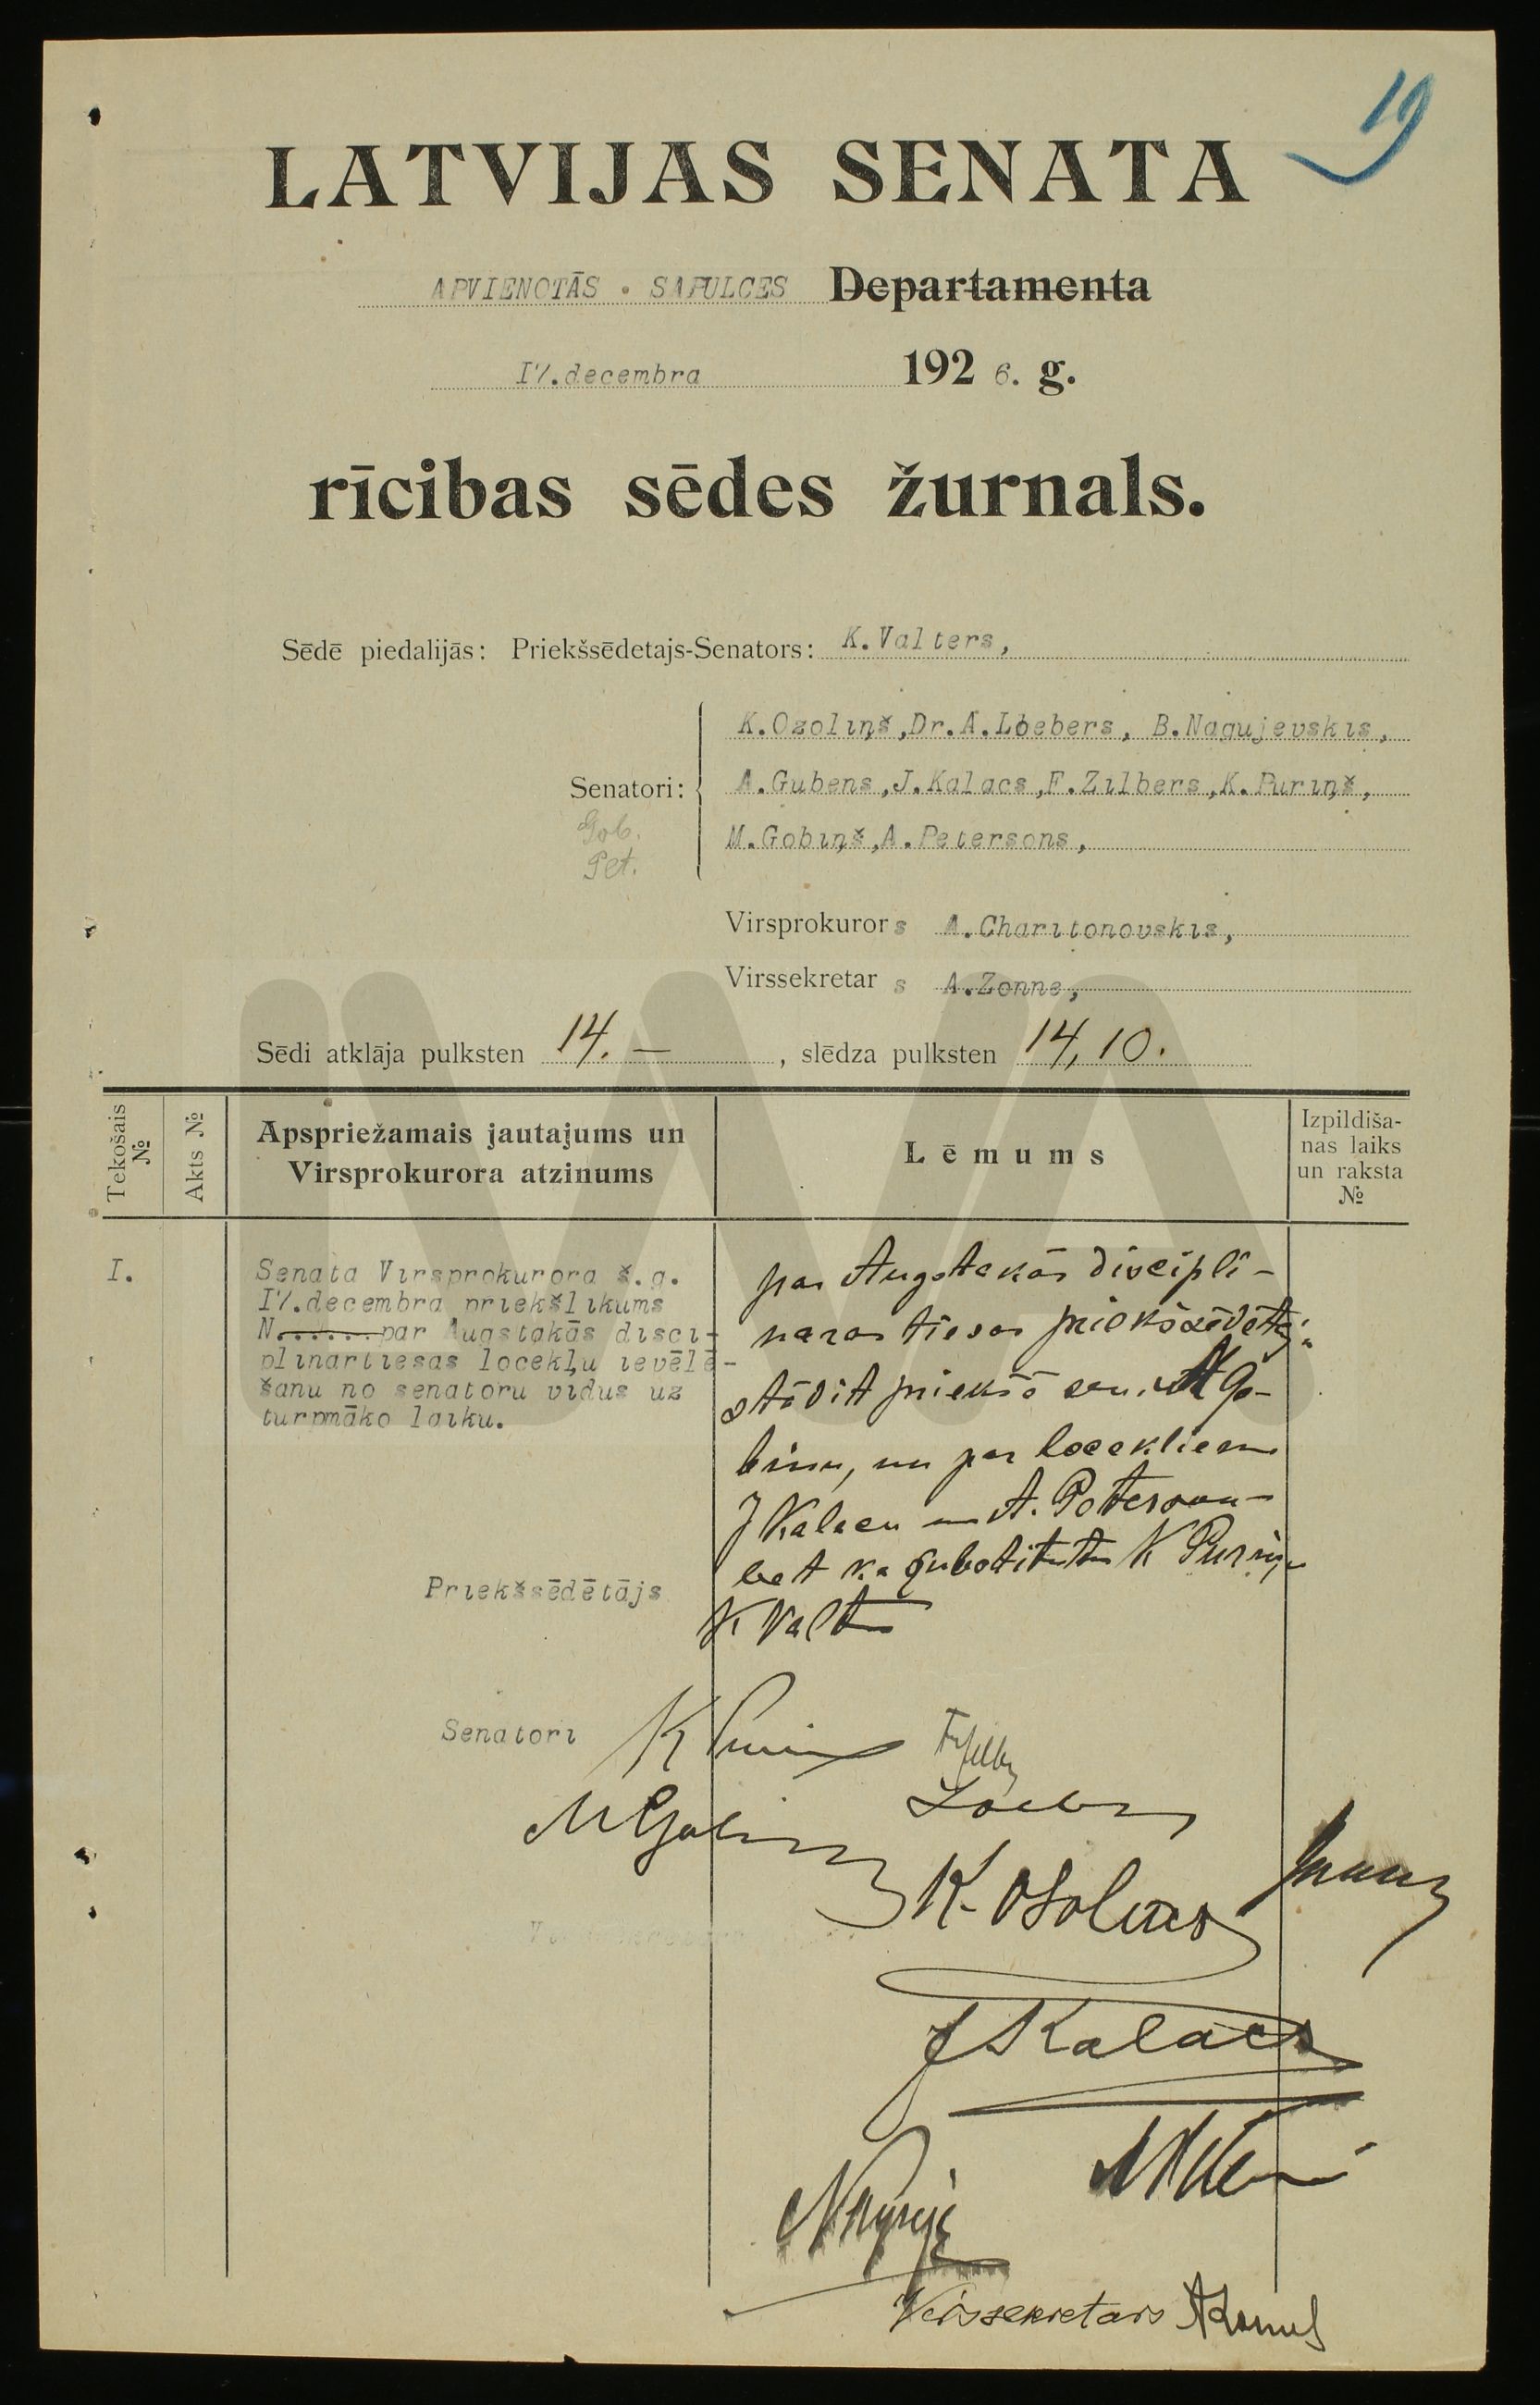 19
LATVIJAS SENATA
APVIENOTĀS SAPULCES Departamenta
I7.decembra 192 6. g.
rīcibas sēdes žurnals.
Sēdē piedalijās: Priekšsēdetajs-Senators: K.Valters,
K.Ozoliņš,Dr.A.Loebers, B.Nagujevskis,
Senatori: A.Gubens,J.Kalacs,F.Zilbers,K.Puriņš,
Gob.
M.Gobiņš,A.Petersons,
Pet.
Virsprokurors A.Charitonovskis,
Virssekretars A.Zonne,
Sēdi atklāja pulksten 14. — , slēdza pulksten 14,10.
Tekošais №
Akts №
Apspriežamais jautajums un Virsprokurora atzinums
Lēmums
Izpildiša-
nas laiks
un raksta
№
I.
Senata Virsprokurora š.g.
I7.decembra priekšlikums
N....... par Augstakās disci-
plinartiesas locekļu ievēlē-
šanu no senatoru vidus uz
turpmāko laiku.
par Augstakās discipli-
naras tiesas priekšsēdētāju
stādīt priekšā sen. M Go-
binu, un par locekliem
J Kalacu un A. Petersonu
bet kā substitutu K Puriņu
Priekšsēdētājs
K Valters
Senatori
K Puriņš
F Zilbers
Loebers
M Gobiņš
K. Osolins
J Kalacs
Virssekretars AZonne